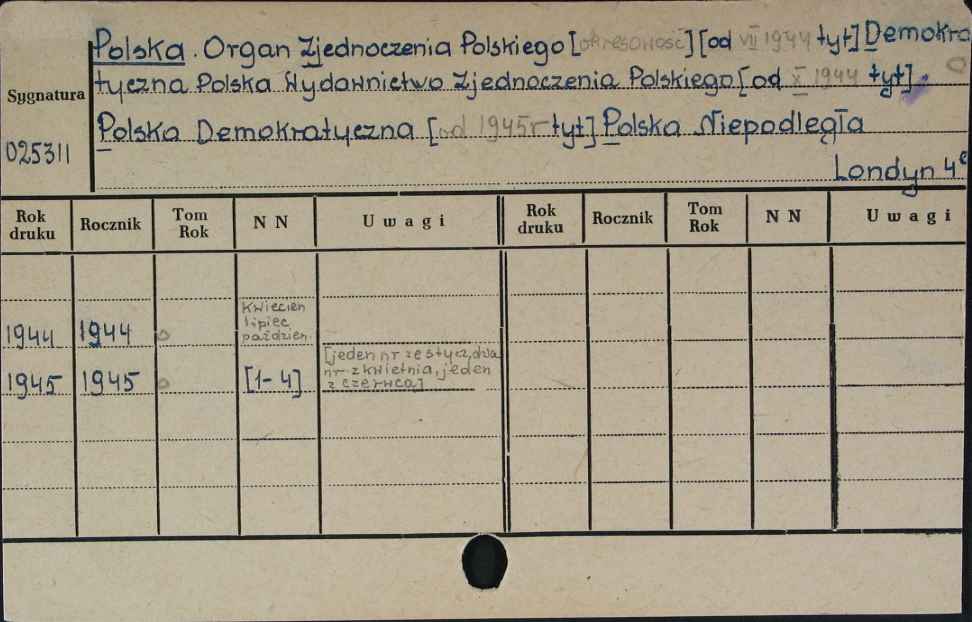 Polska. Organ Zjednoczenia Polskiego [okresowość] [od VII 1944 tyt] Demokra
tyczna Polska Wydawnictwo Zjednoczenia Polskiego [od X 1944 tyt]
Sygnatura
Polska Demokratyczna [od 1945r tyt] Polska Niepodległa
025311
Londyn 4°
Rok druku Rocznik Tom Rok N N Uwagi Rok druku Rocznik Tom Rok N N Uwagi
kwiecień
lipiec
1944 1944 o paździer.
[jeden nr ze stycz, dwa
1945 1945 o [1-4] nr z kwietnia, jeden
z czerwca]